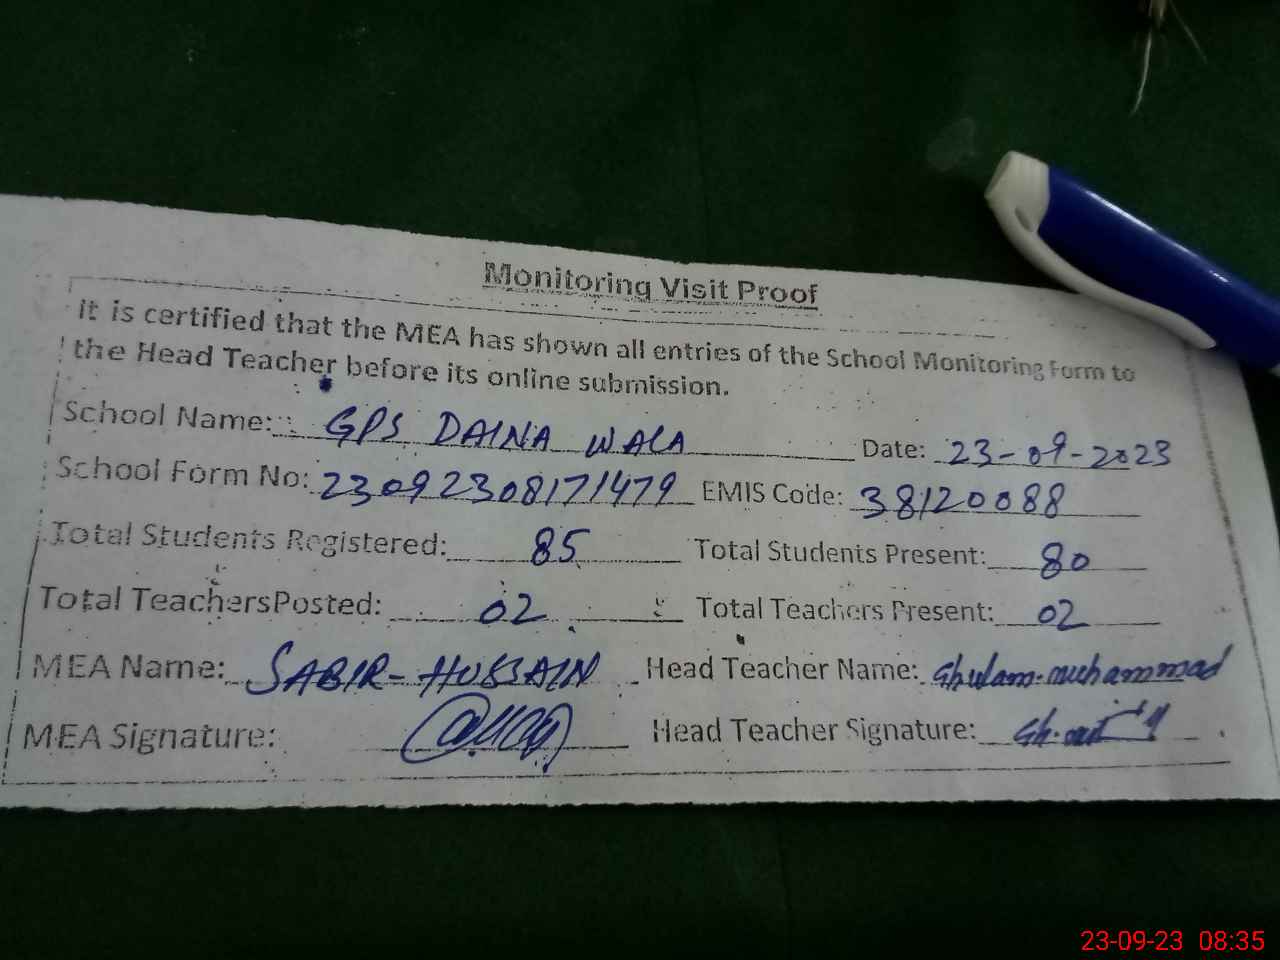 Monitoring Visit Proof
It is certified that the MEA has shown all entries of the School Monitoring Form to
the Head Teacher before its online submission.
School Name: GPS DAINA WALA Date: 23-09-2023
School Form No: 23092308171479 EMIS Code: 38120088
Total Students Registered: 85 Total Students Present: 80
Total TeachersPosted: 02 Total Teachers Present: 02
MEA Name: SABIR-HUSSAIN Head Teacher Name: Ghulam muhammad
MEA Signature: Head Teacher Signature:
23-09-23 08:35